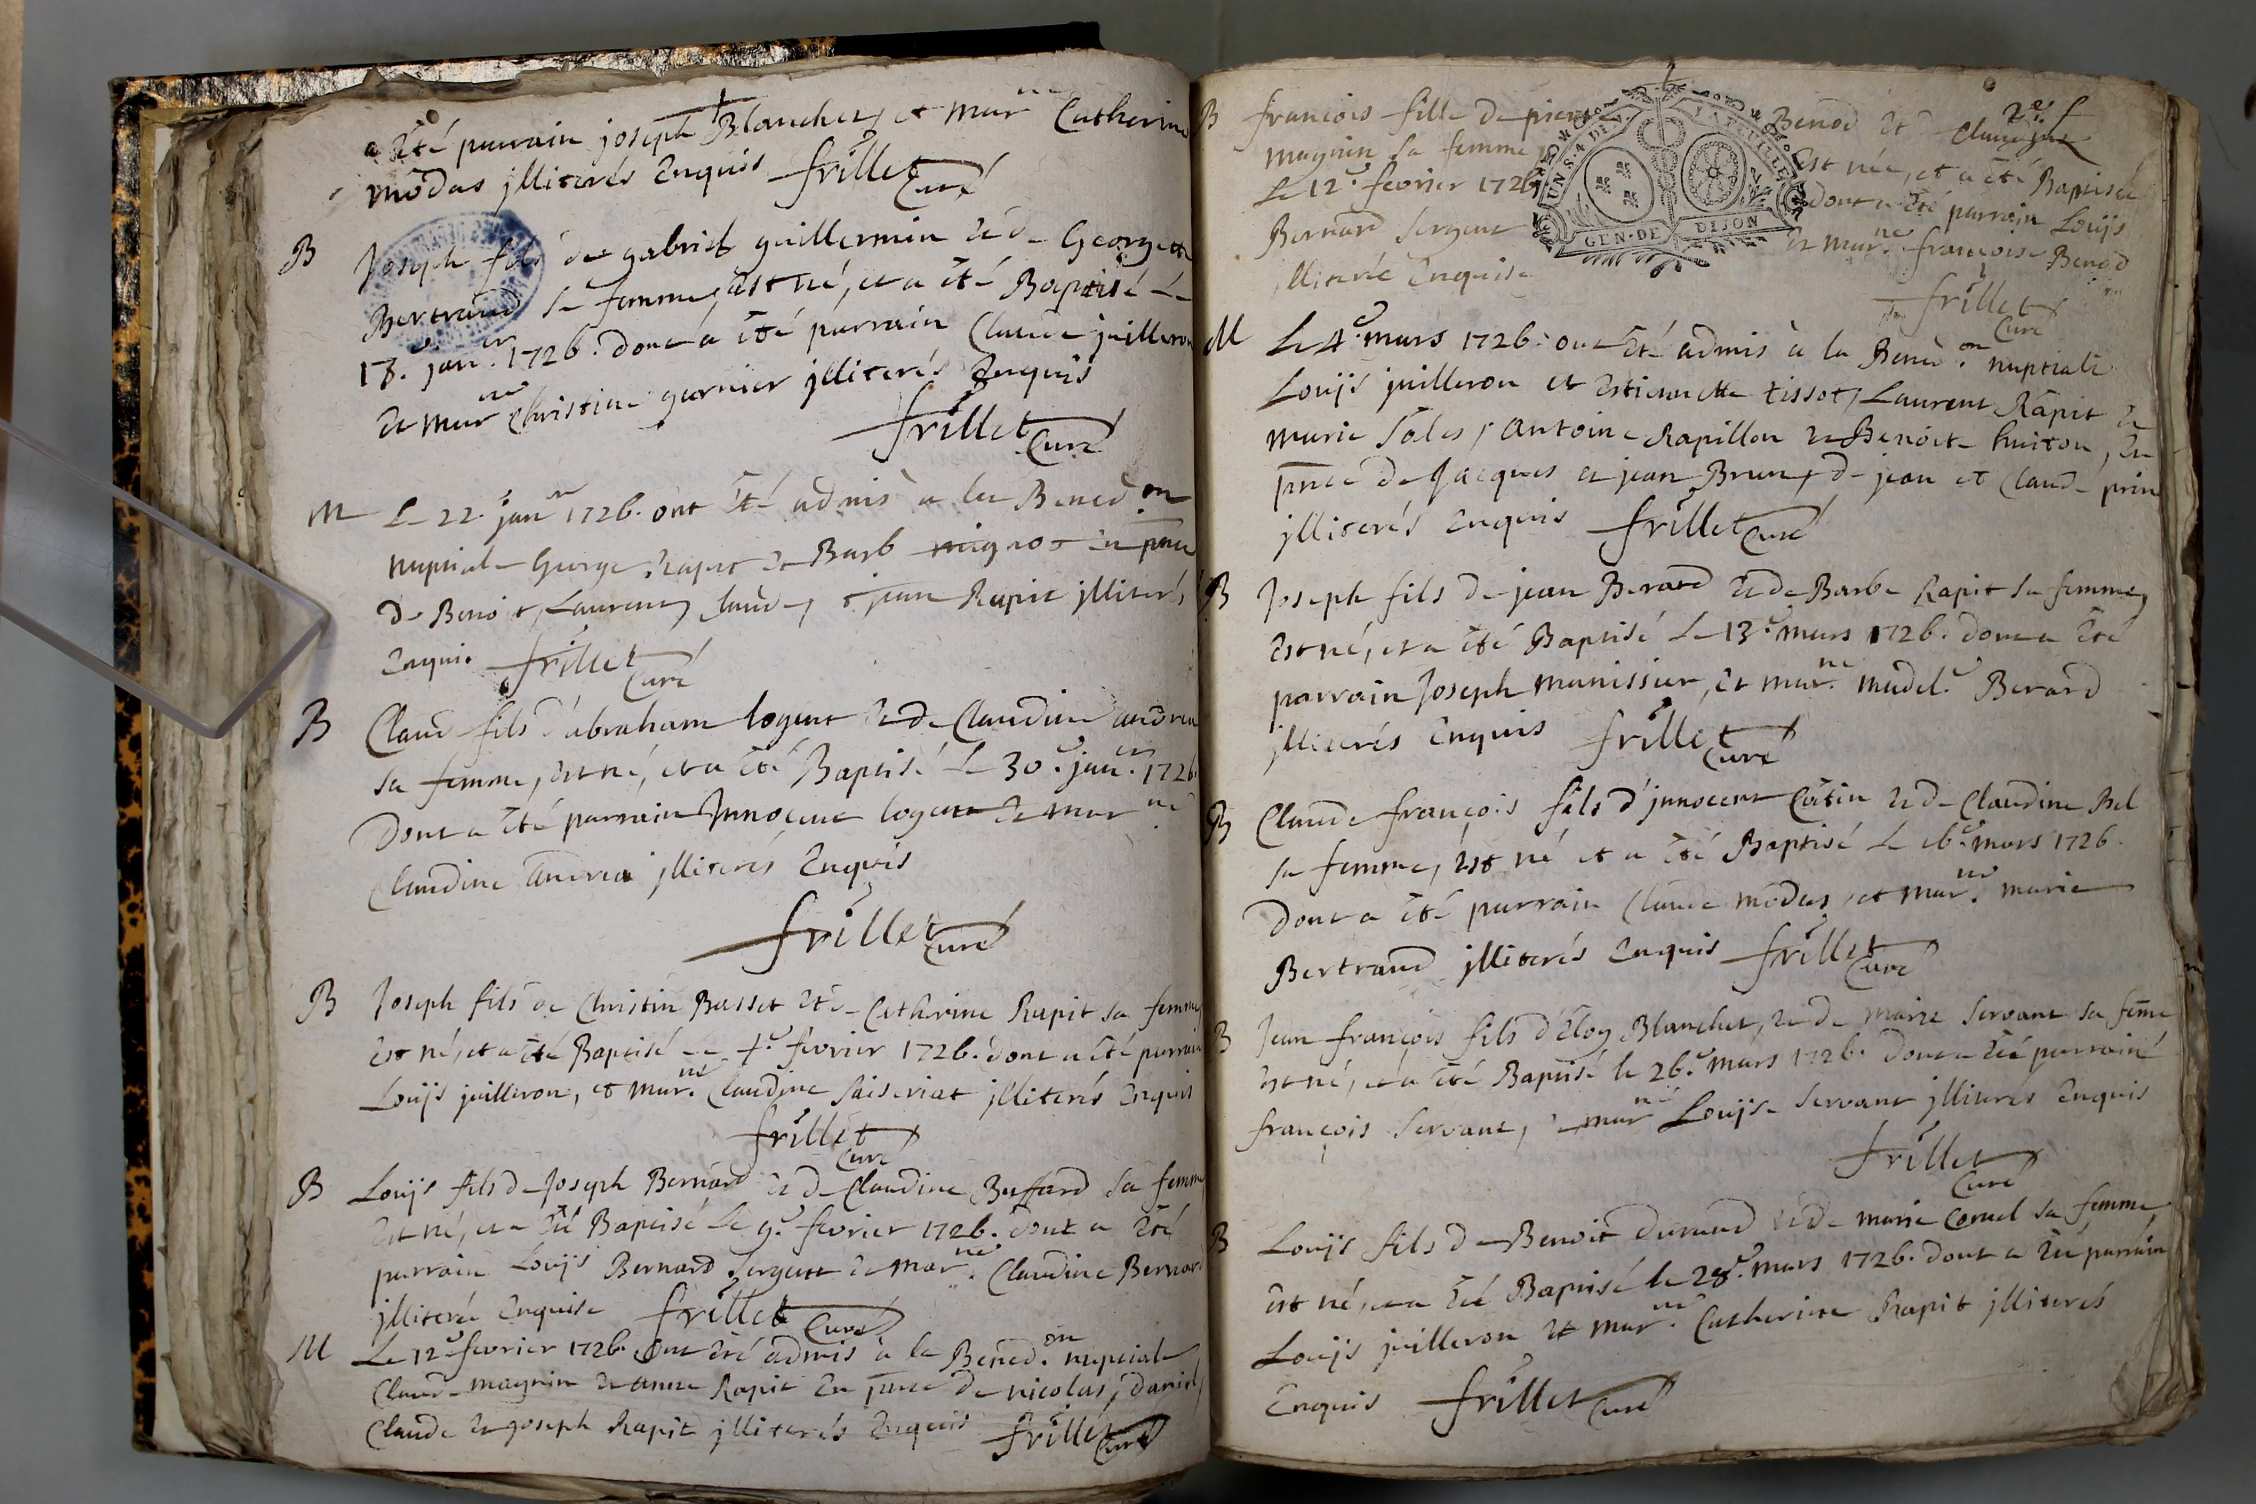 a été parrain joseph Blanchet, et mar ne Catherine
modas jlliterés Enquis frillet Curé
B Joseph fils de gabriel guillermin et de Georgette
Bertrand sa femme, est né, et a été Baptisé le
18.e jan.er 1726. dont a été parrain Claude juilleron
et mar ne Christine garnier jlliterés Enquis
frillet Curé
M Le 22. jan er 1726. ont été admis a la Bened.on
nuptiale George Rapit et Barb mignot en pnce
de Benoit, Laurent, claude, et jean Rapit jlliterés
Enquis frillet Curé
B Claude fils d'abraham logent et de Claudine andrea
sa femme, est né, et a été Baptisé le 30.e jan.er 1726.
dont a été parrain Jnnocent logent et mar ne
Claudine andrea jlliterés Enquis
frillet Curé
B Joseph fils de Christin Basset et de Catherine Rapit sa femme
est né, et a été Baptisé le fevrier 1726. dont a été parrain
Louijs juilleron, et mar.ne Claudine saiseriat jlliterés Enquis
frillet Curé
B Louijs fils de Joseph Bernard et de Claudine Buffard sa femme
est né, et a été Baptisé le 9.e fevrier 1726. dont a été
parrain Louijs Bernard sergent et mar.ne Claudine Bernard
jlliterée Enquise frillet Curé
M Le 12e fevrier 1726. ont été admis à la Bened.on nuptiale
Claude magnin et anne Rapit en pnce de nicolas, daniel,
Claude et joseph Rapit jlliterés Enquis frillet Curé
2.e f
B francois fille de pierre Benod et de Claudine
magnin sa femme est née, et a été Baptisée
Le 12.e fevrier 1726 dont a été parrain Louijs
Bernard sergent et mar.ne françoise Benod
jlliterée Enquise
frillet Curé
UNS.4.DEN. LA FEUILLE
GEN.DE DIJON
M Le 4.e mars 1726. ont été admis à la Bened.on nuptiale
Louijs juilleron et Estiennette tissot, Laurent Rapit et
marie sales, antoine Rapillon et Benoite huiton, en
pnce de Jacques et jean Brun, de jean et Claude prin
jlliterés Enquis frillet Curé
B Joseph fils de jean Berard et de Barbe Rapit sa femme,
est né, et a été Baptisé le 13.e mars 1726. dont a été
parrain Joseph manissier, et mar.ne madel.e Berard
jlliterés Enquis frillet Curé
B Claude françois fils d'jnnocent Catin et de Claudine Bel
sa femme, est né et a été Baptisé le 16.e mars 1726.
dont a été parrain Claude modas, et mar.ne marie
Bertrand jlliterés Enquis frillet Curé
B Jean françois fils d'Eloy Blanchet, et de marie servant sa feme
est né, et a été Baptisé le 26.e mars 1726. dont a été parrain
françois servant, et mar ne Louijse servant jlliterés Enquis
frillet Curé
B Louijs fils de Benoit durand et de marie Cornel sa femme
est né, et a été Baptisé le 28.e mars 1726. dont a été parrain
Louijs juilleron et mar.ne Catherine Rapit jlliterés
Enquis frillet Curé